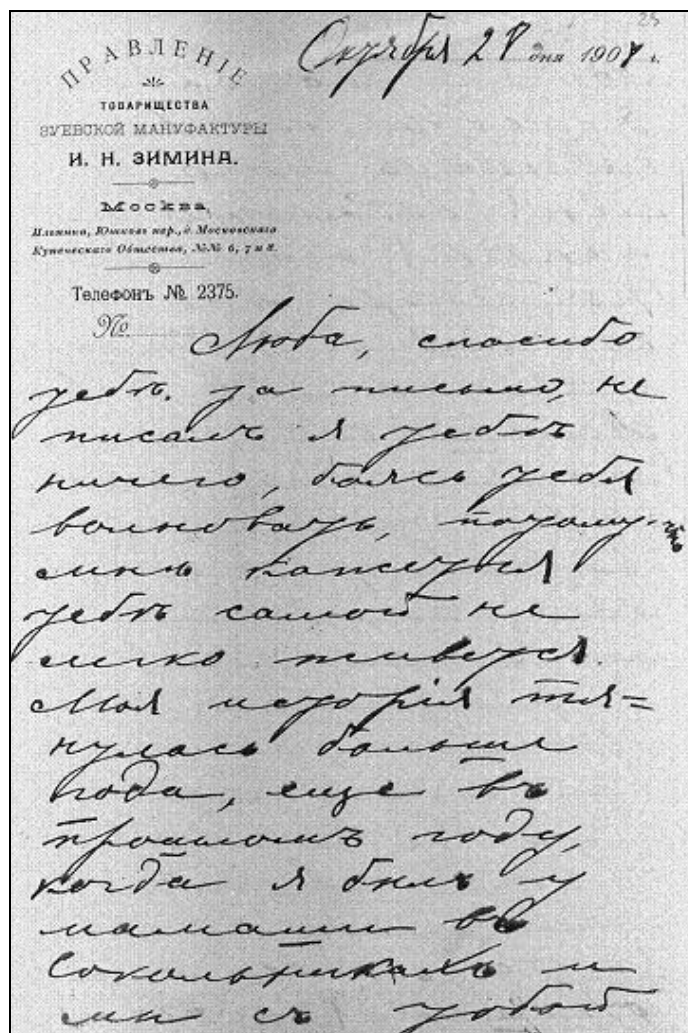 25
Октября 28 дня 1908 г.
ПРАВЛЕНІЕ
ТОВАРИЩЕСТВА
ЗУЕВСКОЙ МАНУФАКТУРЫ
И. Н. ЗИМИНА.
Москва,
Ильинка, Юшковъ пер., д. Московскаго
Купеческаго Общества, №№ 6, 7 и 8.
Телефонъ № 2375.
№
Люба, спасибо
тебѣ за письмо, не
писалъ я тебѣ
ничего, боясь тебя
волновать, потому что
мнѣ кажется
тебѣ самой не
легко живется.
Моя исторія тя=
нулась больше
года, еще въ
прошломъ году,
когда я былъ у
мамаши въ
Сокольникахъ и
мы съ тобой